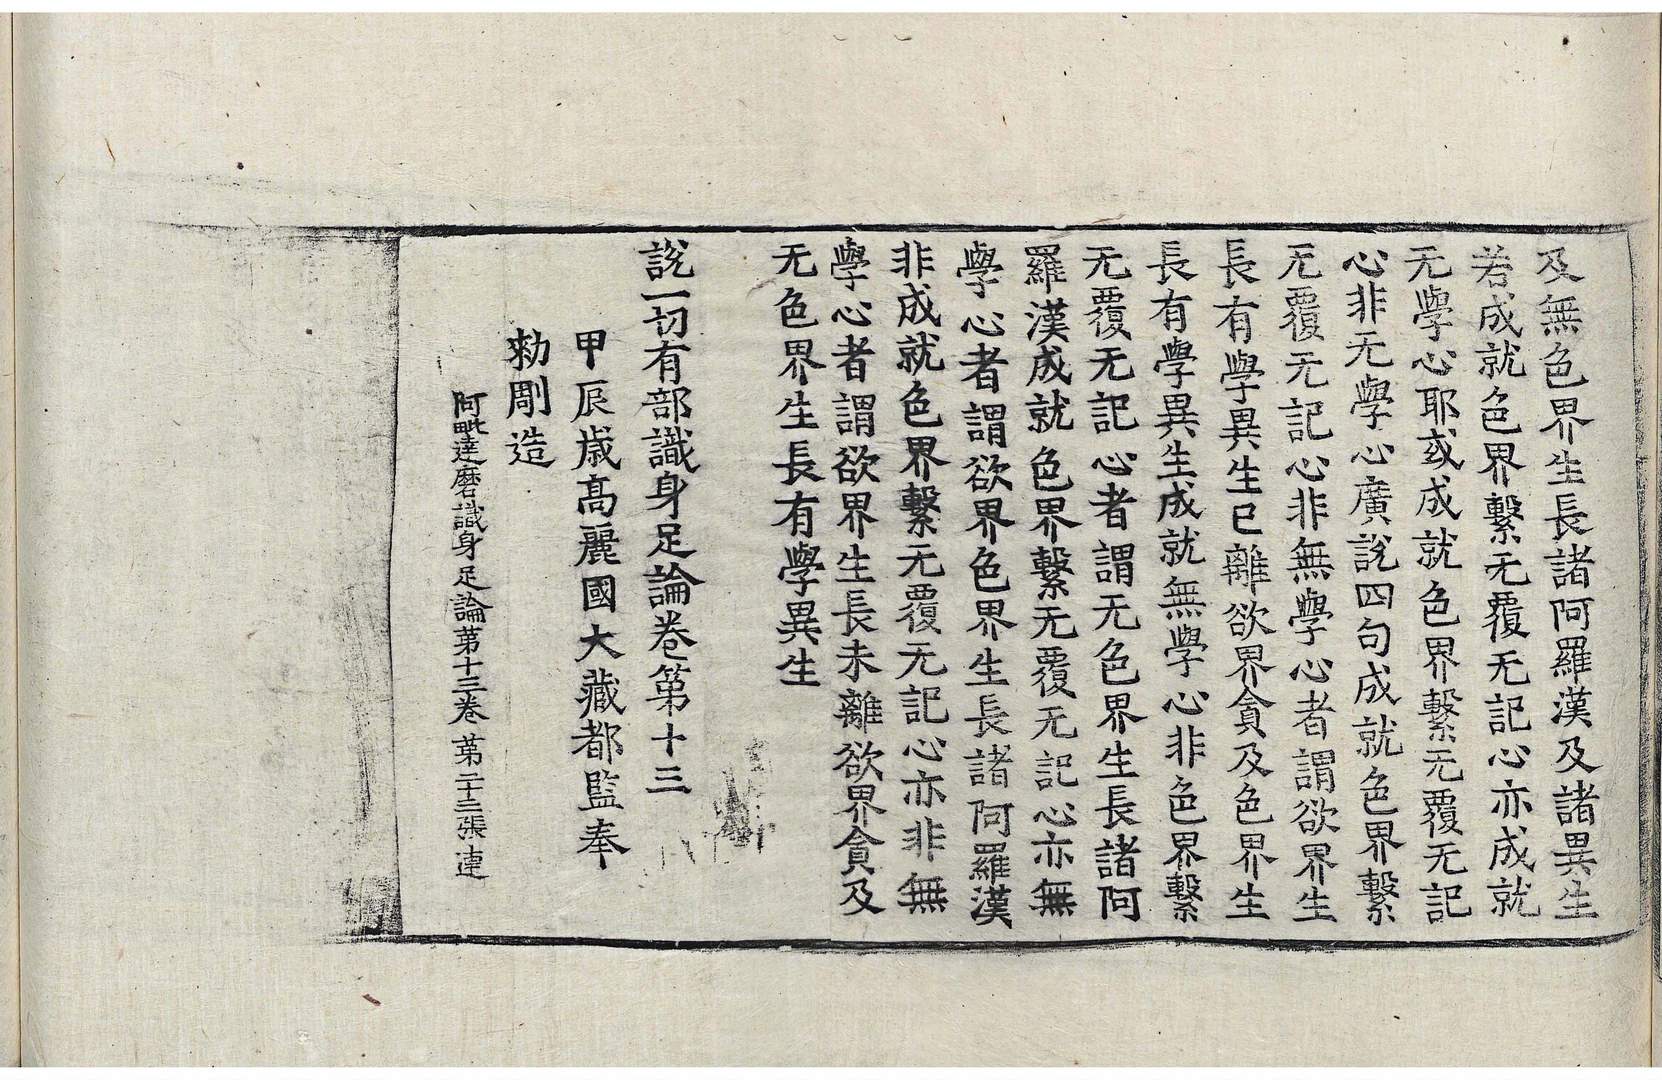 及無色界生長諸阿羅漢及諸異生
若成就色界繫无覆无記心亦成就
无學心耶或成就色界繫无覆无記
心非无學心廣說四句成就色界繫
无覆无記心非無學心者謂欲界生
長有學異生已離欲界貪及色界生
長有學異生成就無學心非色界繫
无覆无記心者謂无色界生長諸阿
羅漢成就色界繫无覆无記心亦無
學心者謂欲界色界生長諸阿羅漢
非成就色界繫无覆无記心亦非無
學心者謂欲界生長未離欲界貪及
无色界生長有學異生
說一切有部識身足論卷第十三
甲辰歲高麗國大藏都監奉
勑彫造
阿毗達磨識身足論第十三卷 第二十二張 連